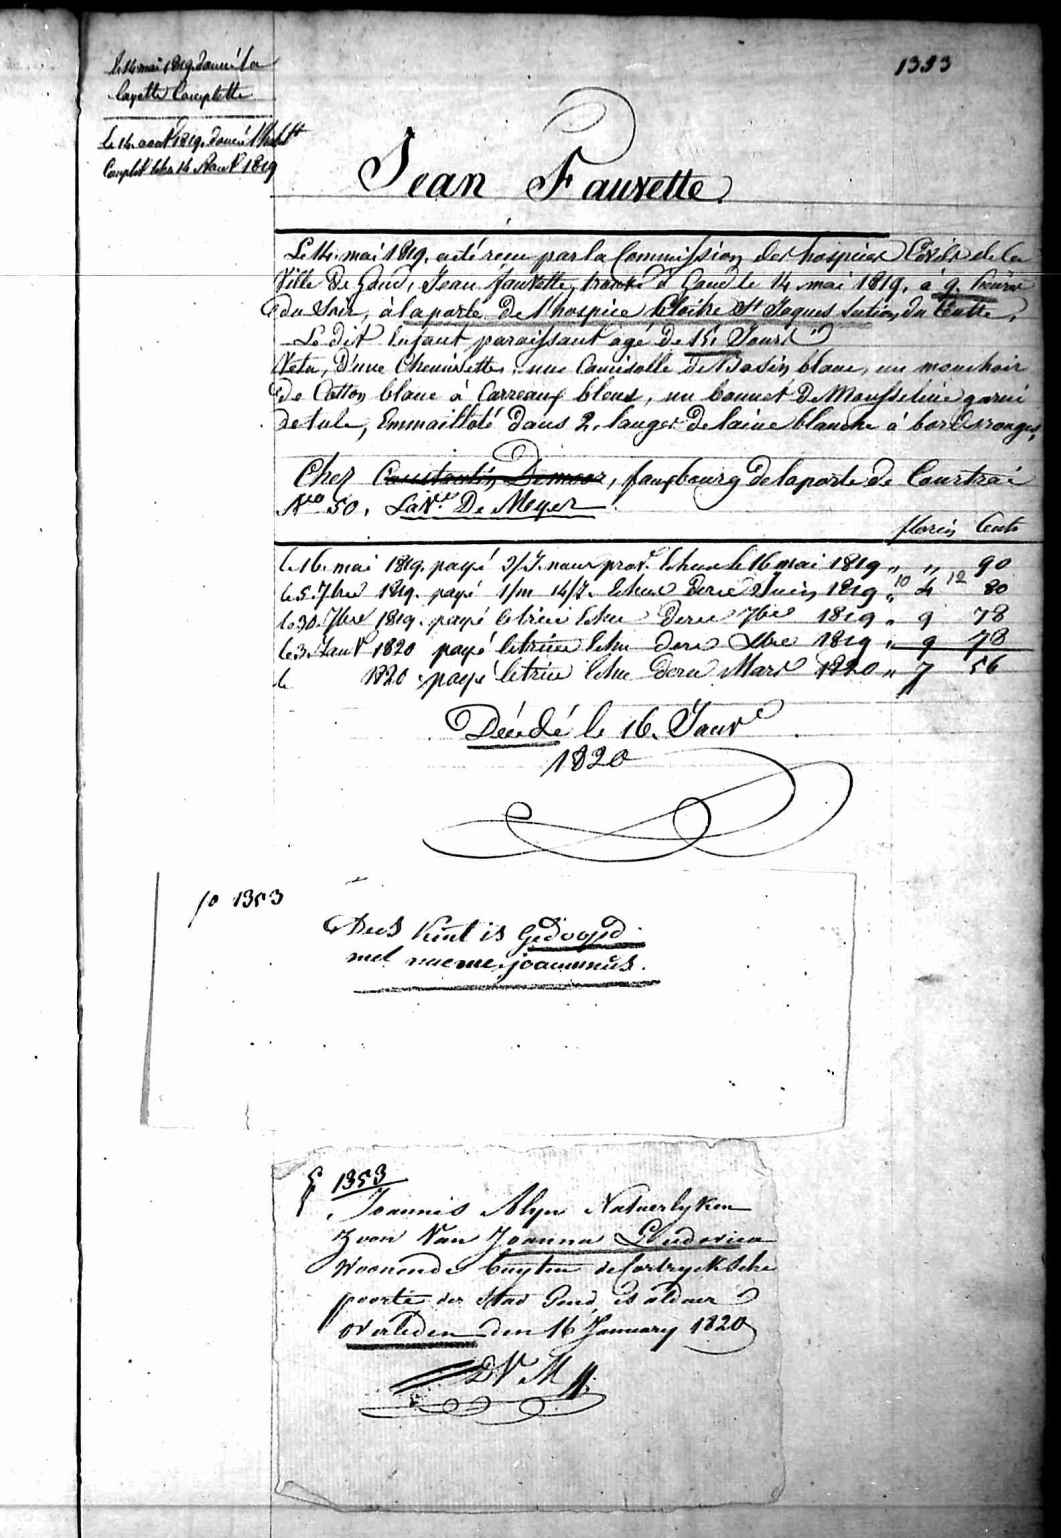 1353
le 14 mai 1819. donné la
layette Complette
le 14. aout 1819. donné
Complet 1819
Jean Fauvette.
Le 14. mai 1819. a eté recu par la Commission des hospices Civils de la
Ville De Gand, Jean fauvette, trouvé à Gand le 14 mai 1819. à 9. heures
du Soir, à la porte De l'hospice Cloitre St Jaques Section du Culte,
Le dit Enfant paraissant agé De 15. Jours
Vetu, D'une Chemisette, une Camisolle de Basin blanc, un mouchoir
De Cotton blanc à Carreaux bleus, un bonnet De Mousseline garni
de tule, Emmailloté dans 2. langes de laine blanche à bords rouges,
Chez , fauxbourg de la porte de Courtrai
No 50. La Ve De Meyer
florin Cents
le 16. mai 1819. payé 3/J. nour prov. echue le 16 mai 1819 „ „ 90
le 5. 7bre 1819. payé 1/m 14/J. echue Juin 1819 „ 10 4 12 80
le 30. 7bre 1819. payé le trim echu 7bre 1819 „ 9 78
le 3. Janv 1820 payé le trim echu Xbre 1819 „ 9 78
le 1820 payé le trim echu Mars 1820 „ 7 56
Décédé le 16. Janv
1820
fo 1353
Dees Kint is Gedoopd
met naeme joannnus.
f 1353
Joannis Alyn Natuerlyken
Zoon Van Joanna Ludovica
Woonende buyten de Cortryksche
poorte der Stad Gend, is aldaer
overleden den 16 January 1820
DV M